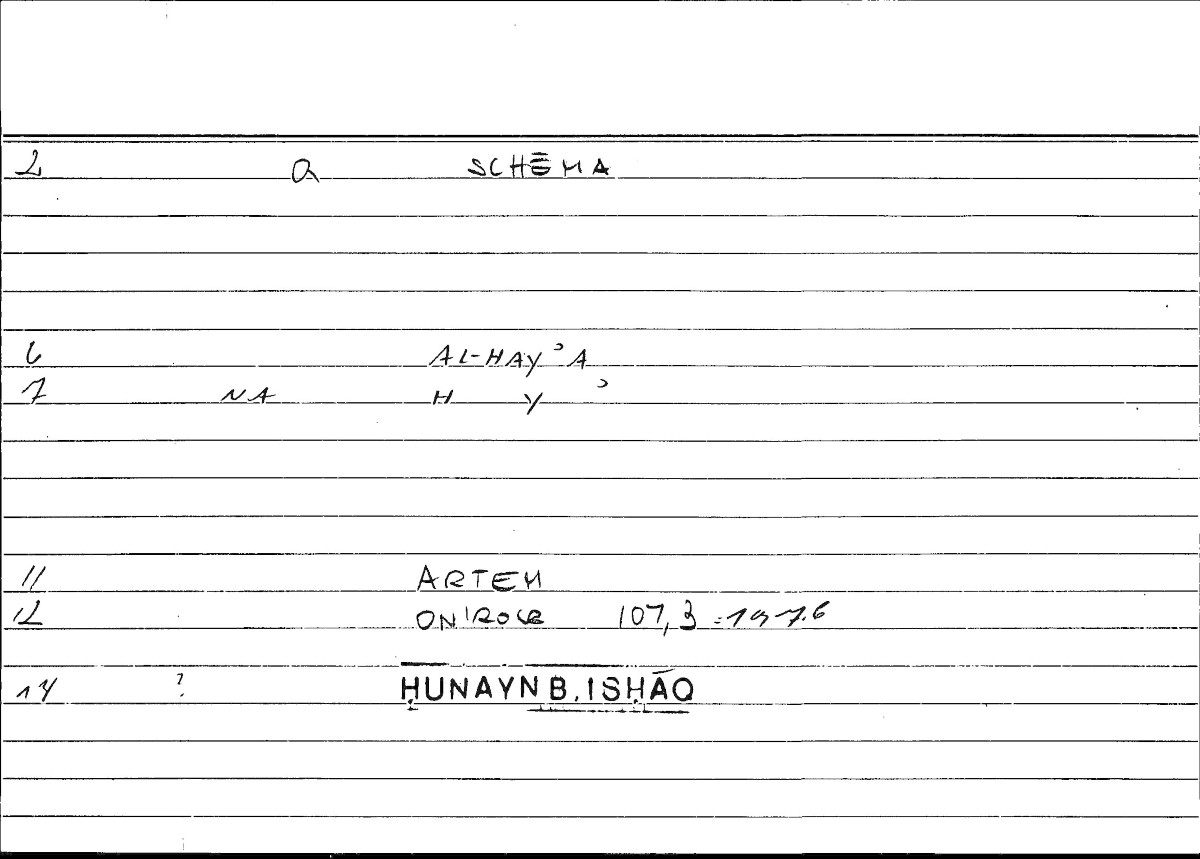 2 Q SCHĒMA
6 AL-HAYʾA
7 NA H Y ʾ
11 ARTEM
12 ONIROCR 107,3 = 197.6
14 ? ḤUNAYN B. ISḤĀQ